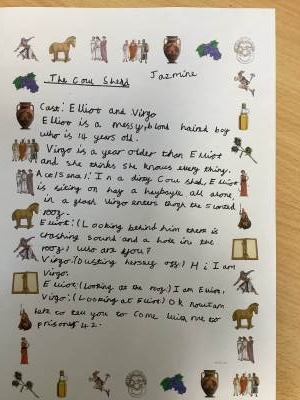 The Cow Shed
Jazmine
Cast: Elliot and Virgo
Elliot is a messy, blond haired boy
who is 14 years old.
Virgo is a year older than Elliot
and she thinks she knows every thing.
Act 1 Scene 1: In a dirty Cow shed, Elliot
is siting on hay a heybayle all alone,
in a gloash Virgo enters throgh the
roog.
Elliot: (Looking behind him there is
crashing sound and a hole in the
roog) who are you?
Virgo: (Dusting herself off) Hi I am
Virgo.
Elliot: (Looking at the roog) I am Elliot.
Virgo: (Looking at Elliot) Ok now I am
here to tell you to come with me to
prisoner 42.